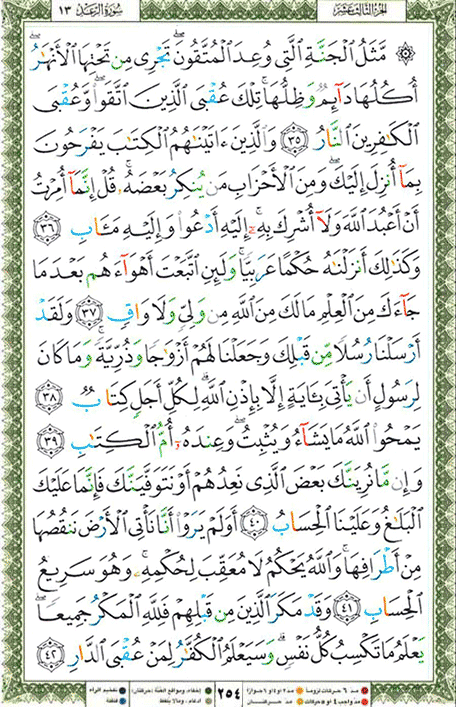 الجزء الثالث عشر
سورة الرعد ١٣
۞ مَّثَلُ ٱلْجَنَّةِ ٱلَّتِى وُعِدَ ٱلْمُتَّقُونَ ۖ تَجْرِى مِن تَحْتِهَا ٱلْأَنْهَٰرُ ۖ
أُكُلُهَا دَآئِمٌ وَظِلُّهَا ۚ تِلْكَ عُقْبَى ٱلَّذِينَ ٱتَّقَوا۟ ۖ وَّعُقْبَى
ٱلْكَٰفِرِينَ ٱلنَّارُ ٣٥ وَٱلَّذِينَ ءَاتَيْنَٰهُمُ ٱلْكِتَٰبَ يَفْرَحُونَ
بِمَآ أُنزِلَ إِلَيْكَ ۖ وَمِنَ ٱلْأَحْزَابِ مَن يُنكِرُ بَعْضَهُۥ ۚ قُلْ إِنَّمَآ أُمِرْتُ
أَنْ أَعْبُدَ ٱللَّهَ وَلَآ أُشْرِكَ بِهِۦٓ ۚ إِلَيْهِ أَدْعُوا۟ وَإِلَيْهِ مَـَٔابِ ٣٦
وَكَذَٰلِكَ أَنزَلْنَٰهُ حُكْمًا عَرَبِيًّا ۚ وَلَئِنِ ٱتَّبَعْتَ أَهْوَآءَهُم بَعْدَمَا
جَآءَكَ مِنَ ٱلْعِلْمِ مَا لَكَ مِنَ ٱللَّهِ مِن وَلِىٍّ وَلَا وَاقٍ ٣٧ وَلَقَدْ
أَرْسَلْنَا رُسُلًا مِّن قَبْلِكَ وَجَعَلْنَا لَهُمْ أَزْوَٰجًا وَذُرِّيَّةً ۚ وَمَا كَانَ
لِرَسُولٍ أَن يَأْتِىَ بِـَٔايَةٍ إِلَّا بِإِذْنِ ٱللَّهِ ۗ لِكُلِّ أَجَلٍ كِتَابٌ ٣٨
يَمْحُوا۟ ٱللَّهُ مَا يَشَآءُ وَيُثْبِتُ ۖ وَعِندَهُۥٓ أُمُّ ٱلْكِتَٰبِ ٣٩
وَإِن مَّا نُرِيَنَّكَ بَعْضَ ٱلَّذِى نَعِدُهُمْ أَوْ نَتَوَفَّيَنَّكَ فَإِنَّمَا عَلَيْكَ
ٱلْبَلَٰغُ وَعَلَيْنَا ٱلْحِسَابُ ٤٠ أَوَلَمْ يَرَوْا۟ أَنَّا نَأْتِى ٱلْأَرْضَ نَنقُصُهَا
مِنْ أَطْرَافِهَا ۚ وَٱللَّهُ يَحْكُمُ لَا مُعَقِّبَ لِحُكْمِهِۦ ۚ وَهُوَ سَرِيعُ
ٱلْحِسَابِ ٤١ وَقَدْ مَكَرَ ٱلَّذِينَ مِن قَبْلِهِمْ فَلِلَّهِ ٱلْمَكْرُ جَمِيعًا ۖ
يَعْلَمُ مَا تَكْسِبُ كُلُّ نَفْسٍ ۗ وَسَيَعْلَمُ ٱلْكُفَّٰرُ لِمَنْ عُقْبَى ٱلدَّارِ ٤٢
مد ٦ حركات لزوما مد ٢ او ٤ او ٦ جوازا
مد واجب ٤ او ٥ حركات مد حركتان
٢٥٤
إخفاء، ومواقع الغنة (حركتان) تفخيم الراء
ادغام، وما لا يلفظ قلقلة